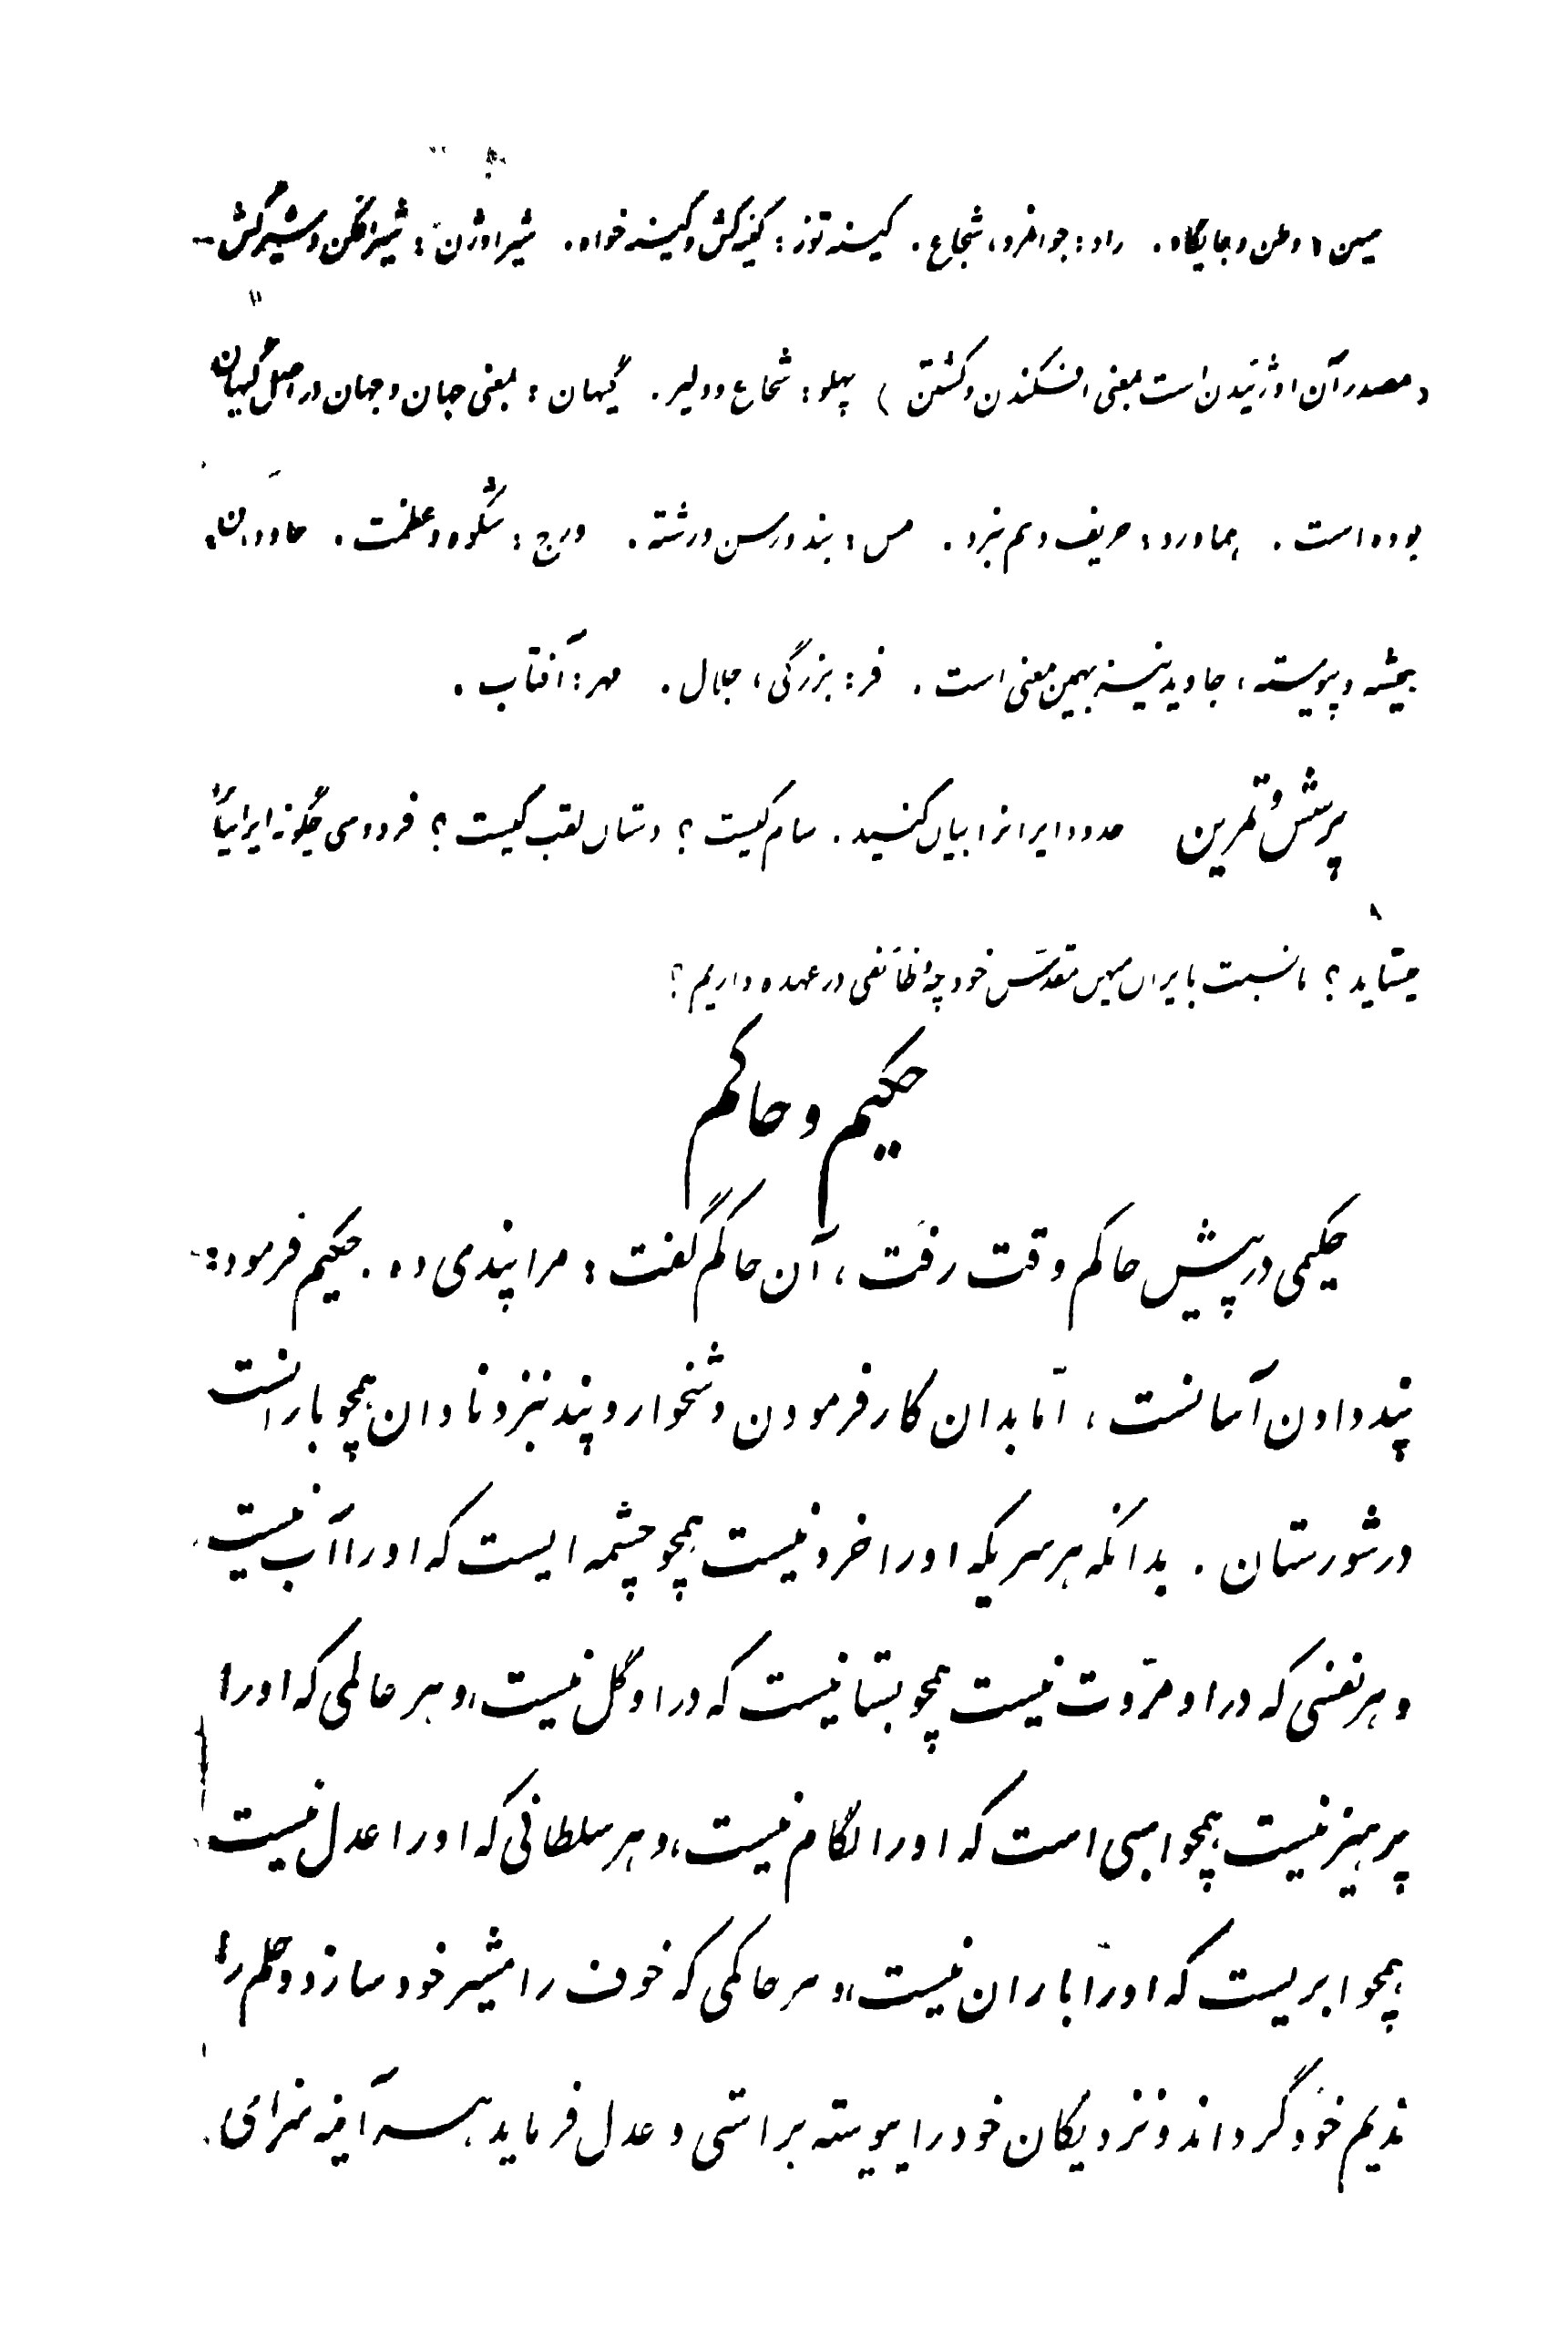 میهن: وطن و جایگاه. راد: جوانمرد، شجاع. کینه توز: کینه کش و کینه خواه. شیر اوژن: شیر افکن و شیر کش -
(مصدر آن اوژنیدن است بمعنی افکندن و کشتن) پهلو: شجاع و دلیر. گیهان: بمعنی جهان و جهان در اصل گیهان
بوده است. هماورد: حریف و هم نبرد. بند و رسن و رشته. ورج: شکوه و عظمت. جاودان:
همیشه و پیوسته، جاوید نیز بهمین معنی است. فر: بزرگی، جلال. مهر: آفتاب.
پرسش و تمرین حدود ایرانرا بیان کنید. سام کیست؟ دستان لقب کیست؟ فردوسی چگونه ایرانیان را
میستاید؟ ما نسبت بایران میهن مقدس خود چه وظائفی در عهده داریم؟
حکیم و حاکم
حکیمی در پیش حاکم وقت رفت، آن حاکم گفت: مرا پندی ده. حکیم فرمود:
پند دادن آسانست، امّا بدان کار فرمودن دشخوار و پند بنزد نادان همچو بارانست
در شورستان. بدانکه هر سریکه او را خرد نیست همچو چشمه ایست که او را آب نیست
و هر نفسی که در او مروّت نیست همچو بستانیست که در او گل نیست، و هر عالمی که او را
پرهیز نیست همچو اسبی است که او را لگام نیست، و هر سلطانی که او را عدل نیست
همچو ابریست که او را باران نیست، و هر حاکمی که خوف را مشیر خود سازد و حلم را
ندیم خود گرداند و نزدیکان خود را پیوسته براستی و عدل فرماید هر آینه سزای